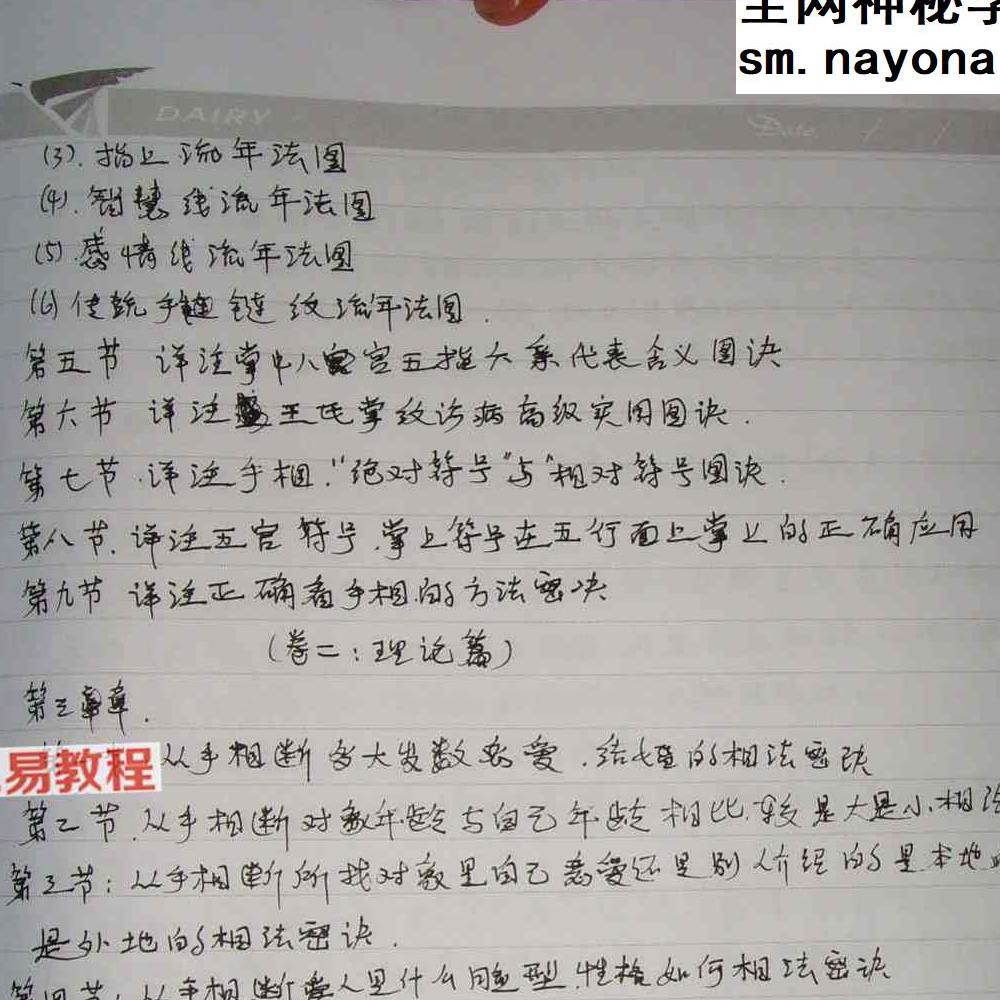 全网神秘学
sm.nayona
DAIRY
Date / /
(3).指上流年法图
(4).智慧线流年法图
(5).感情线流年法图
(6)传统手链纹流年法图.
第五节 详注掌中八宫五指六亲代表含义图诀
第六节 详注王氏掌纹诊病高级实用图诀.
第七节.详注手相."绝对符号"与"相对符号图诀.
第八节.详注五宫符号.掌上符号在五行面上掌上的正确应用
第九节 详注正确看手相的方法密决
(卷二:理论篇)
第三章.
易教程 从手相断多大岁数恋爱.结婚的相法密诀
第二节.从手相断对象年龄与自己年龄相比.较是大是小.相法
第三节:从手相断所找对象是自己恋爱还是别人介绍的是本地
是外地的相法密诀.
第四节:从手相断爱人是什么 型.性格如何相法密诀